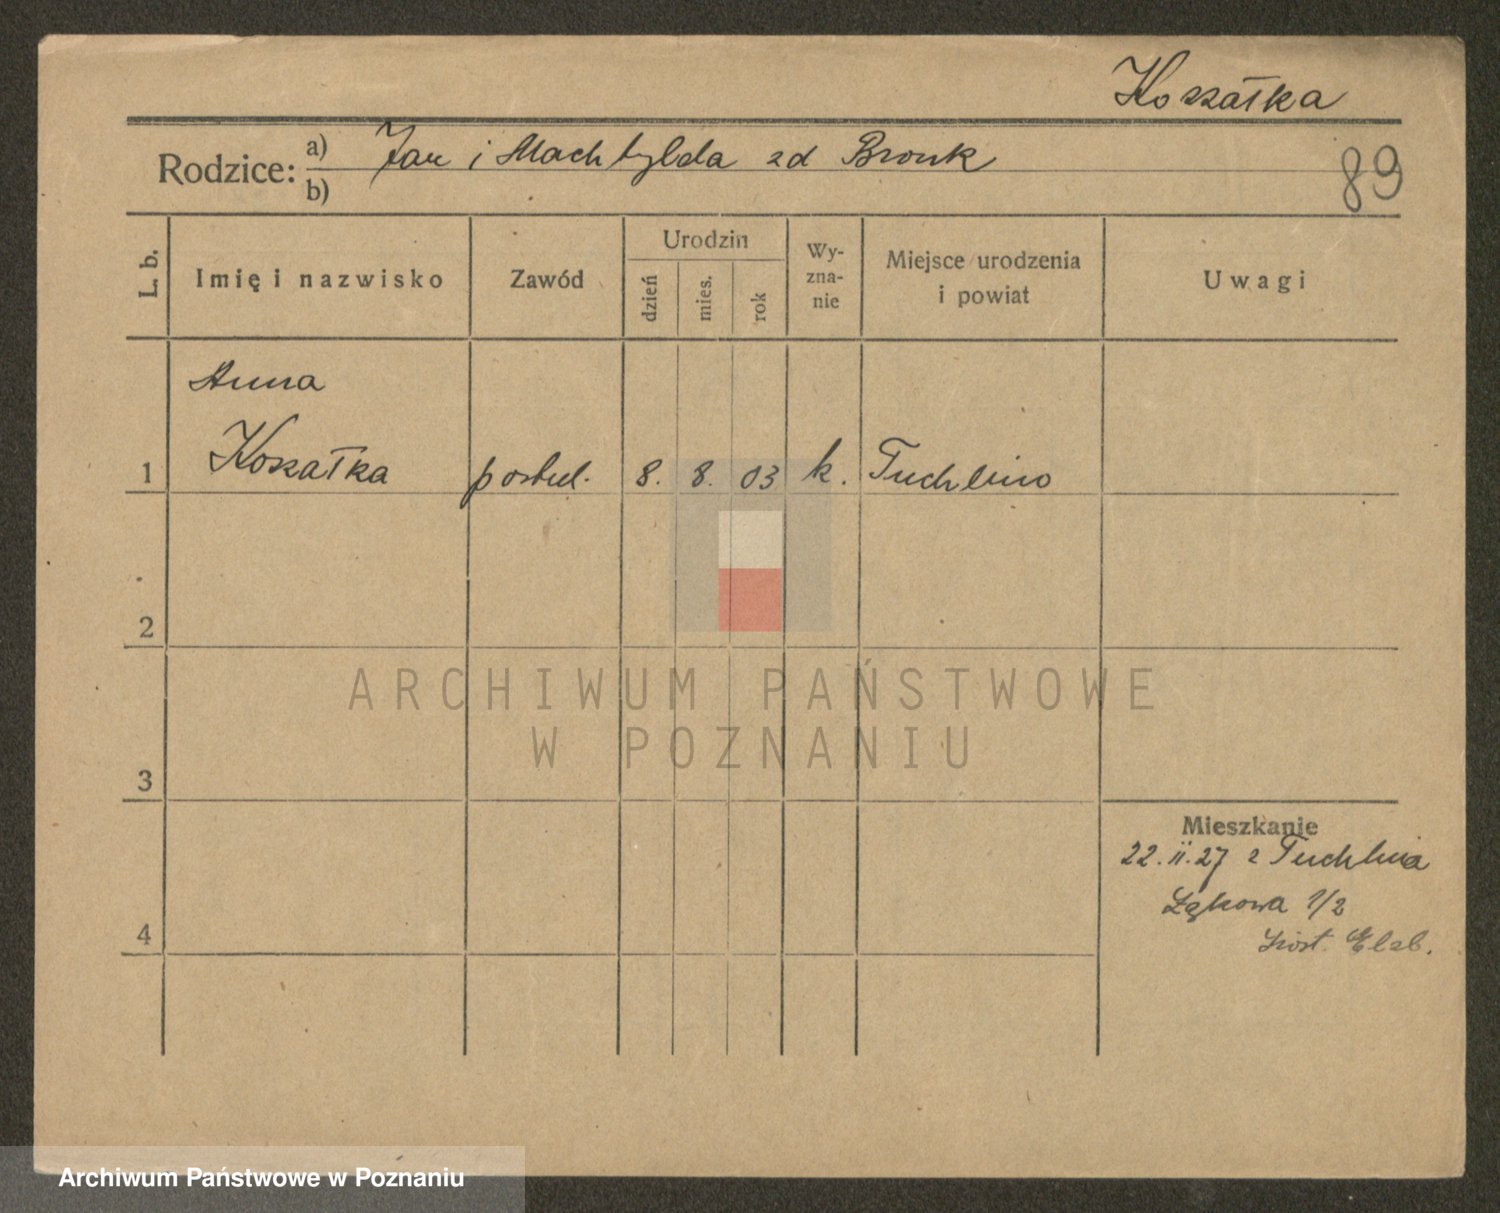 Koszałka
Rodzice: a) Jan i Machtylda zd Bronk
b)
89
L. b.
Imię i nazwisko
Zawód
Urodzin
dzień
mies.
rok
Wy-
zna-
nie
Miejsce urodzenia
i powiat
Uwagi
Anna
1 Koszałka postul. 8. 8. 03 k. Tuchlino
2
3
4
Mieszkanie
22.II.27 z Tuchlina
Łąkowa 1/2
Elzb.
ARCHIWUM PAŃSTWOWE
W POZNANIU
Archiwum Państwowe w Poznaniu